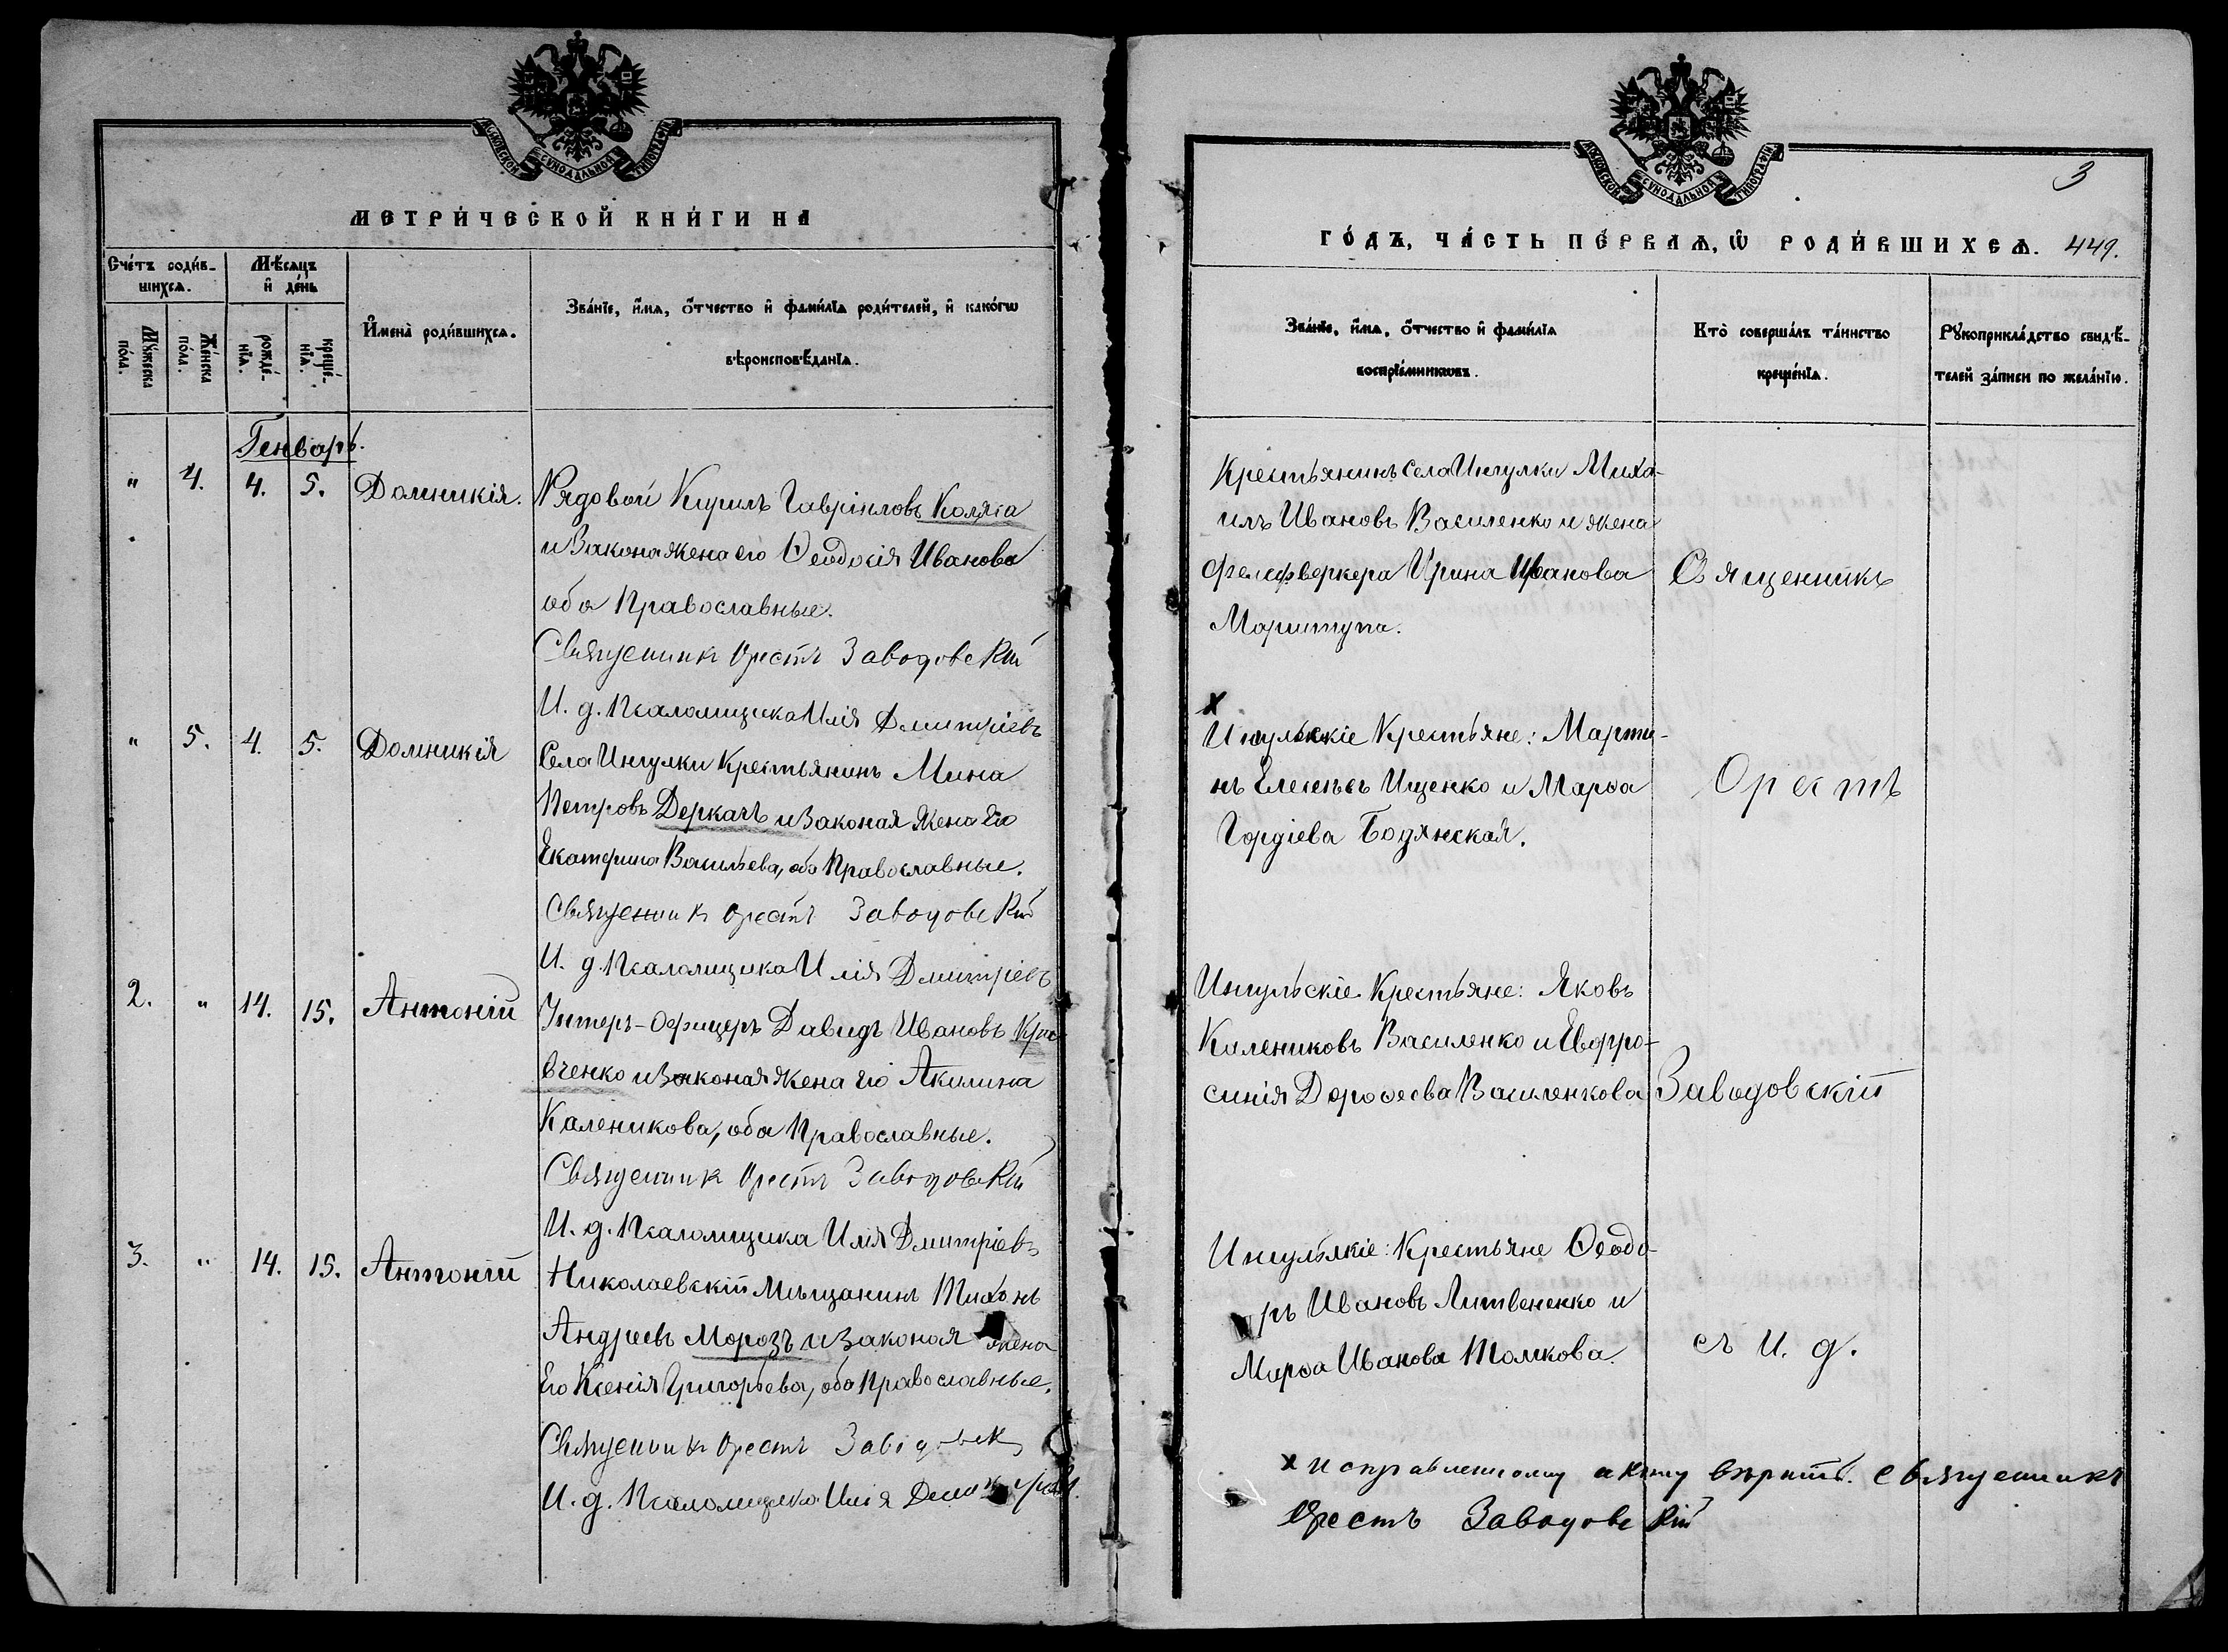 МОСКОВСКОЙ СѴНОДАЛЬНОЙ ТИПОГРАФІИ
МЕТРИ́ЧЕСКОЙ КНИ́ГИ НА
Сче́тъ роди́в-
шихся.
Мѣ́сяцъ
и҆ де́нь
И҆мена̀ роди́вшихся.
Зва́нїе, и҆́мя, ѻ҆́тчество и҆ фами́лїа роди́телей, и҆ како́гѡ
вѣроисповѣ́данїа.
Мꙋ́жеска
по́ла.
Же́нска
по́ла.
рожде́-
нїа.
креще́-
нїа.
Генварь.
" 4. 4. 5. Домникія. Рядовой Кирилъ Гавріиловъ Коляга
и Закона жена его Ѳеодосія Иванова
оба Православные.
Священникъ Орестъ Заводовскій
И. д. Псаломщика Илія Дмитріевъ
" 5. 4. 5. Домникія Села Ингулки Крестьянинъ Мина
Петровъ Деркачъ и Законая Жена Его
Екатерина Васильева, оба Православные.
Священникъ Орестъ Заводовскій
И. д. Псаломщика Илія Дмитріевъ
2. " 14. 15. Антоній Унтеръ-Офицеръ Давидъ Ивановъ Кри-
вченко и Законая Жена Его Акилина
Каленикова, оба Православные.
Священникъ Орестъ Заводовскій
И. д. Псаломщика Илія Дмитріевъ
3. " 14. 15. Антоній Николаевскій Мѣщанинъ Тихонъ
Андреевъ Морозъ и Законая жена
Его Ксенія Григорьева, оба Православные.
Священникъ Орестъ
И. д. Псаломщика Илія
МОСКОВСКОЙ СѴНОДАЛЬНОЙ ТИПОГРАФІИ
3
ГО́ДЪ, ЧА́СТЬ ПЕ́РВАЯ, Ѡ҆ РОДИ́ВШИХСЯ. 449.
Зва́нїе, и҆́мя, ѻ҆́тчество и҆ фами́лїа
воспрїе́мникѡвъ.
Кто̀ соверша́лъ та́инство
креще́нїа.
Рꙋкоприкла́дство свидѣ́-
телей за́писи по жела́нїю.
Крестьянинъ Села Ингулки Миха-
илъ Ивановъ Василенко и жена
фелефверкера Ирина Иванова
Мариту­па.
х
Ингульскіе Крестьяне: Марти-
нъ Елесѣевъ Ищенко и Марѳа
Гордіева Бодянская.
Ингульскіе Крестьяне: Яковъ
Калениковъ Василенко и Евфро-
синія Дороѳеева Василенкова
Ингульскіе: Крестьяне Ѳеодо-
ръ Ивановъ Литвененко и
Марѳа Иванова Толкова.
Священникъ
Орестъ
Заводовскій
съ И. д.
х исправленному вѣрить. Священникъ
Орестъ Заводовскій